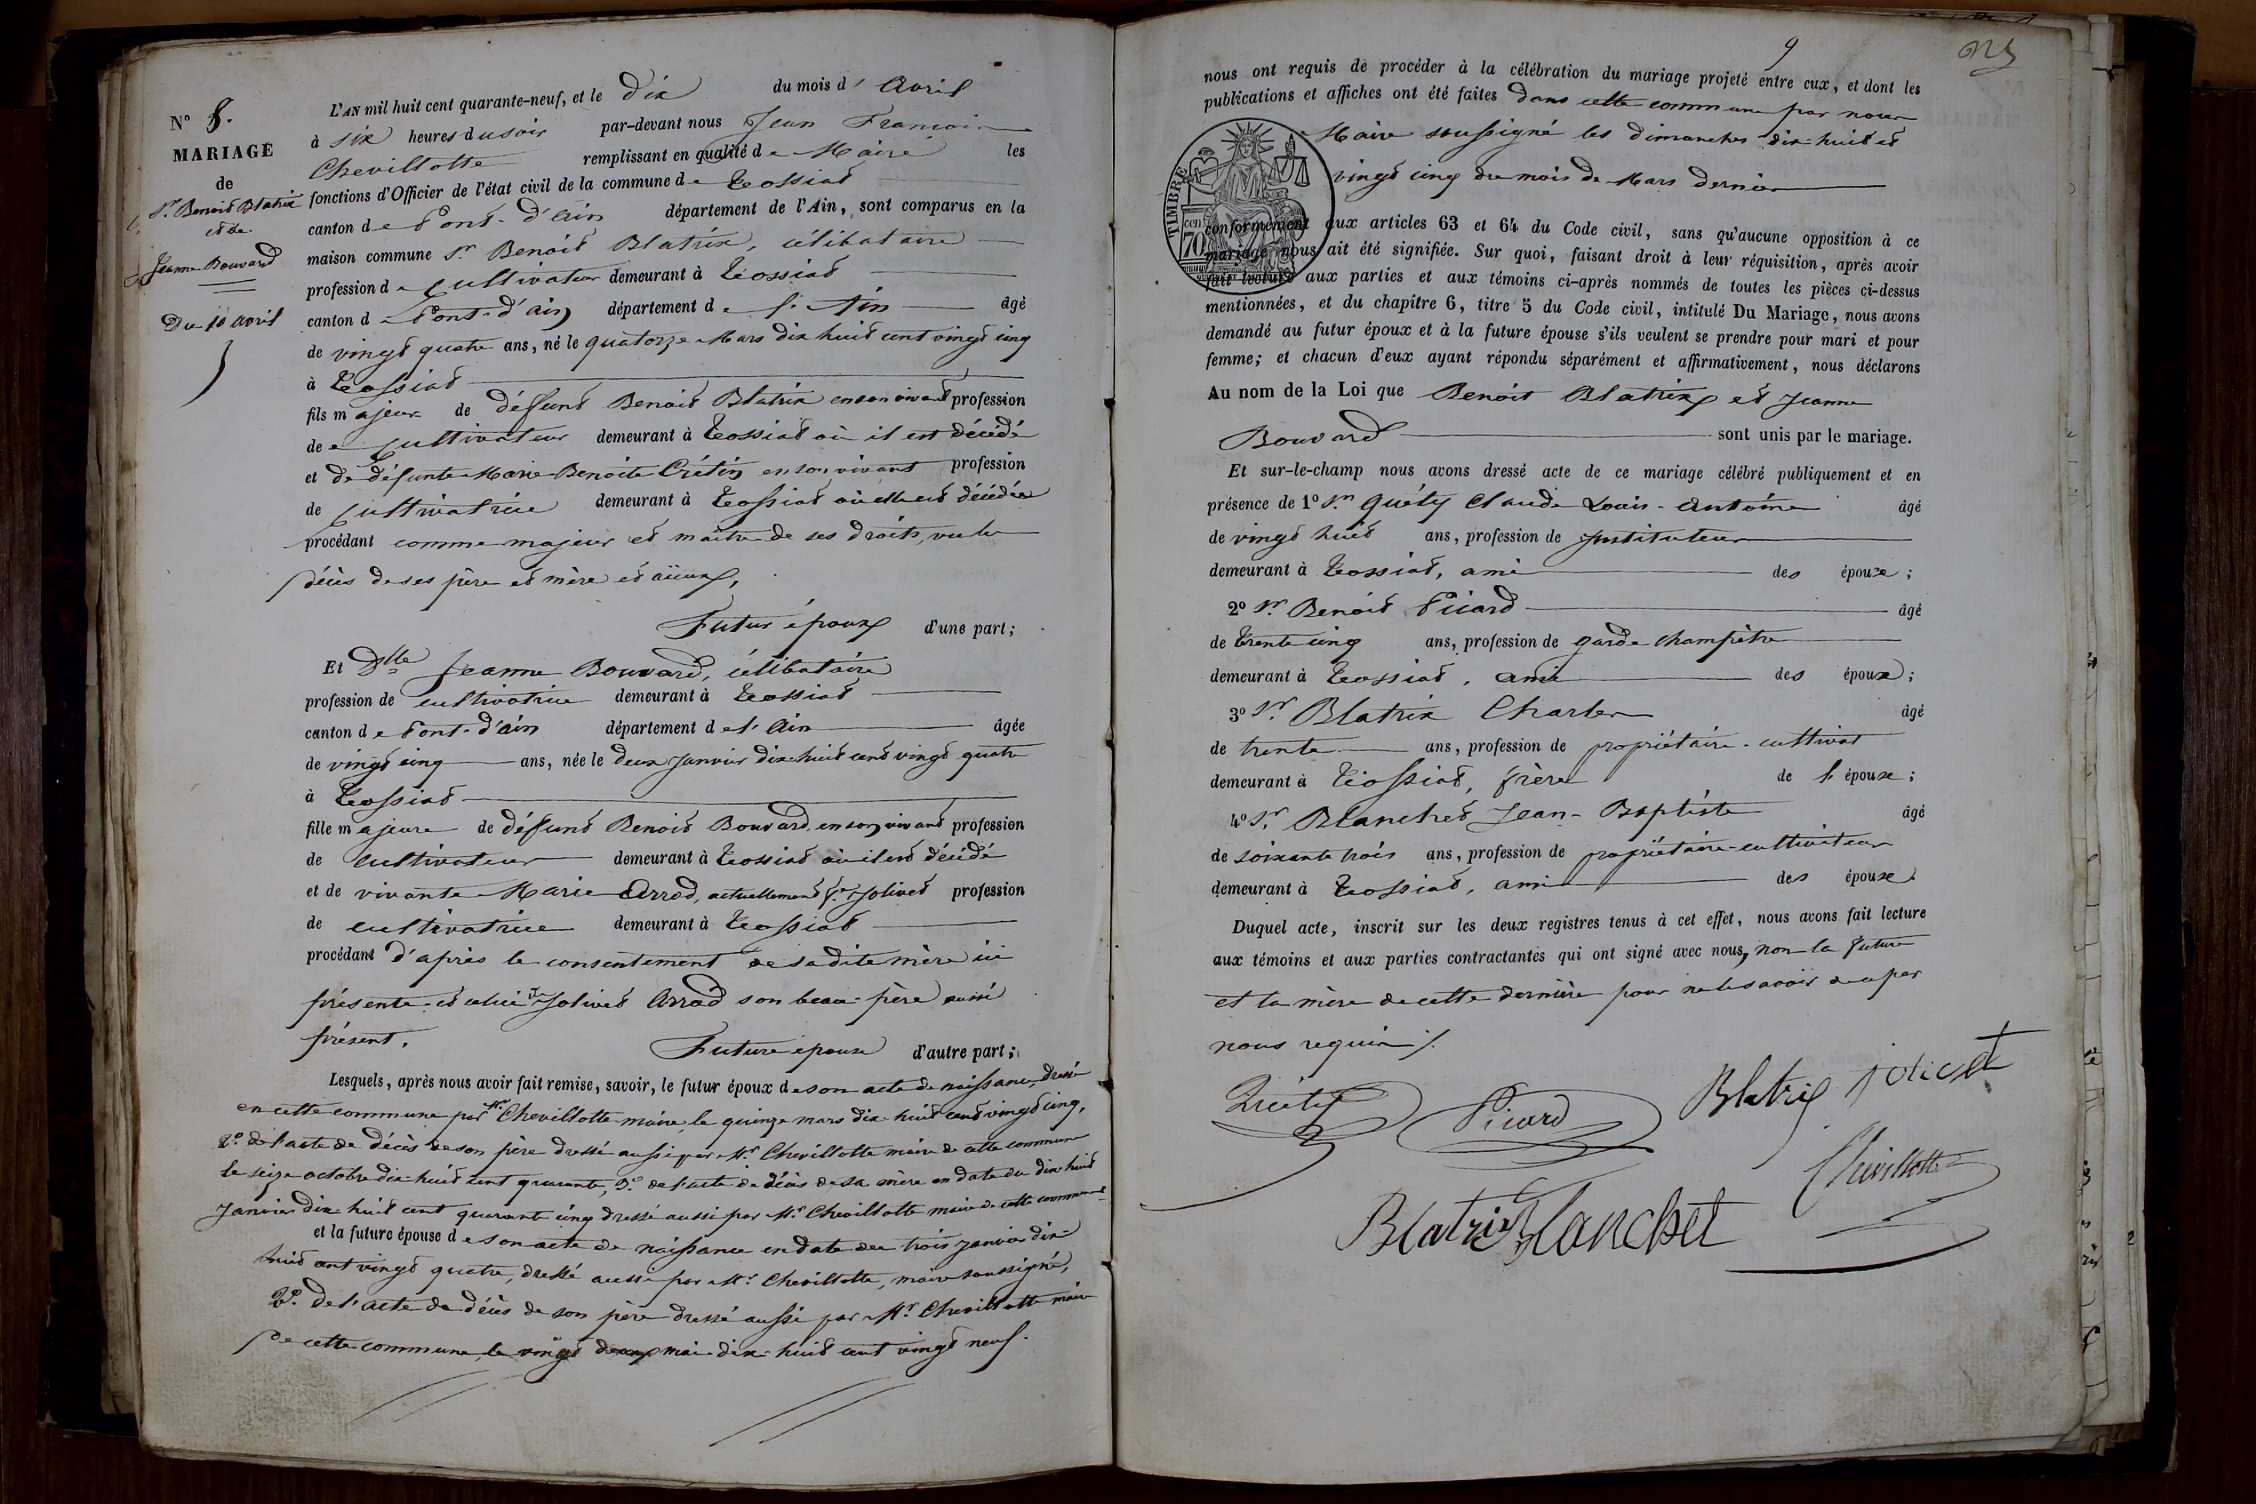 N° 8.
MARIAGE
de
Sr. Benoit Blatrix
et de
Jeanne Bouvard
Du 10 avril
L'AN mil huit cent quarante-neuf, et le dix du mois d'Avril
à six heures du soir par-devant nous Jean François
Chevillotte remplissant en qualité de Maire les
fonctions d'Officier de l'état civil de la commune de Tossiat
canton de Pont-d'Ain département de l'Ain, sont comparus en la
maison commune Sr. Benoit Blatrix, célibataire
profession de Cultivateur demeurant à Tossiat
canton de Pont-d'ain département de l'Ain âgé
de vingt quatre ans, né le quatorze Mars dix huit cent vingt cinq
à Tossiat
fils majeur de défunt Benoit Blatrix en son vivant profession
de Cultivateur demeurant à Tossiat où il est décédé
et de défunte Marie Benoite Crétin en son vivant profession
de Cultivatrice demeurant à Tossiat où elle est décédée
procédant comme majeur et maître de ses droits, vu le
décès de ses père et mère et aïeux,
Futur époux d'une part;
Et Dlle Jeanne Bouvard, célibataire
profession de cultivatrice demeurant à Tossiat
canton de Pont-d'ain département de l'Ain âgée
de vingt cinq ans, née le deux Janvier dix-huit cent vingt quatre
à Tossiat
fille majeure de défunt Benoit Bouvard, en son vivant profession
de Cultivateur demeurant à Tossiat où il est décédé
et de vivante Marie Arrod, actuellement fe. Jolivet profession
de cultivatrice demeurant à Tossiat
procédant d'après le consentement de sadite mère ici
présente et celui Jolivet Arrod son beau-père aussi
présent.
Future épouse d'autre part;
Lesquels, après nous avoir fait remise, savoir, le futur époux de son acte de naissance, dressé
en cette commune par Mr. Chevillotte maire le quinze mars dix huit cent vingt cinq,
2°. de l'acte de décès de son père dressé aussi par Mr. Chevillotte maire de cette commune
le seize octobre dix-huit cent quarante, 3°. de l'acte de décès de sa mère en date du dix huit
Janvier dix huit cent quarante cinq dressé aussi par Mr. Chevillotte maire de cette commune
et la future épouse de son acte de naissance en date du trois janvier dix-
huit cent vingt quatre, dressé aussi par Mr. Chevillotte, maire soussigné,
2°. de l'acte de décès de son père dressé aussi par Mr. Chevillotte maire
de cette commune, le vingt deux mai dix-huit cent vingt neuf.
9
nous ont requis de procéder à la célébration du mariage projeté entre eux, et dont les
publications et affiches ont été faites dans cette commune par nous
Maire soussigné les dimanches dix-huit et
vingt cinq du mois de Mars dernier
TIMBRE
70
cent
conformément aux articles 63 et 64 du Code civil, sans qu'aucune opposition à ce
mariage nous ait été signifiée. Sur quoi, faisant droit à leur réquisition, après avoir
fait lecture aux parties et aux témoins ci-après nommés de toutes les pièces ci-dessus
mentionnées, et du chapitre 6, titre 5 du Code civil, intitulé Du Mariage, nous avons
demandé au futur époux et à la future épouse s'ils veulent se prendre pour mari et pour
femme; et chacun d'eux ayant répondu séparément et affirmativement, nous déclarons
Au nom de la Loi que Benoit Blatrix et Jeanne
Bouvard sont unis par le mariage.
Et sur-le-champ nous avons dressé acte de ce mariage célébré publiquement et en
présence de 1° Sr. Quéty Claude Louis-Antoine âgé
de vingt huit ans, profession de Instituteur
demeurant à Tossiat, ami des époux;
2° Sr. Benoit Picard âgé
de trente cinq ans, profession de garde champêtre
demeurant à Tossiat, ami des époux;
3° Sr. Blatrix Charles âgé
de trente ans, profession de propriétaire-cultivat
demeurant à Tossiat, frère de l'époux;
4° Sr. Blanchet Jean-Baptiste âgé
de soixante trois ans, profession de propriétaire-cultivateur
demeurant à Tossiat, ami des époux.
Duquel acte, inscrit sur les deux registres tenus à cet effet, nous avons fait lecture
aux témoins et aux parties contractantes qui ont signé avec nous, non la future
et la mère de cette dernière pour ne le savoir de ce par
nous requis ./.
Quéty Picard Blatrix Jolivet
Chevillotte
Blatrix Blanchet